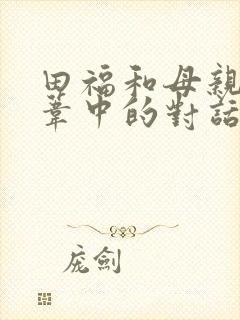 田福和母親
葦中的對話
庞劍